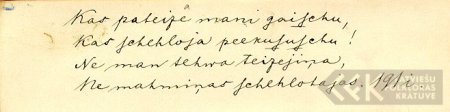 Kas pateiʃe mani gaischu,
Kas schehloja peekususchu!
Ne man tehwa teizejiņa,
Ne mahmiņas schehlotajas. 1912
LATVIEŠU
FOLKLORAS
KRĀTUVE